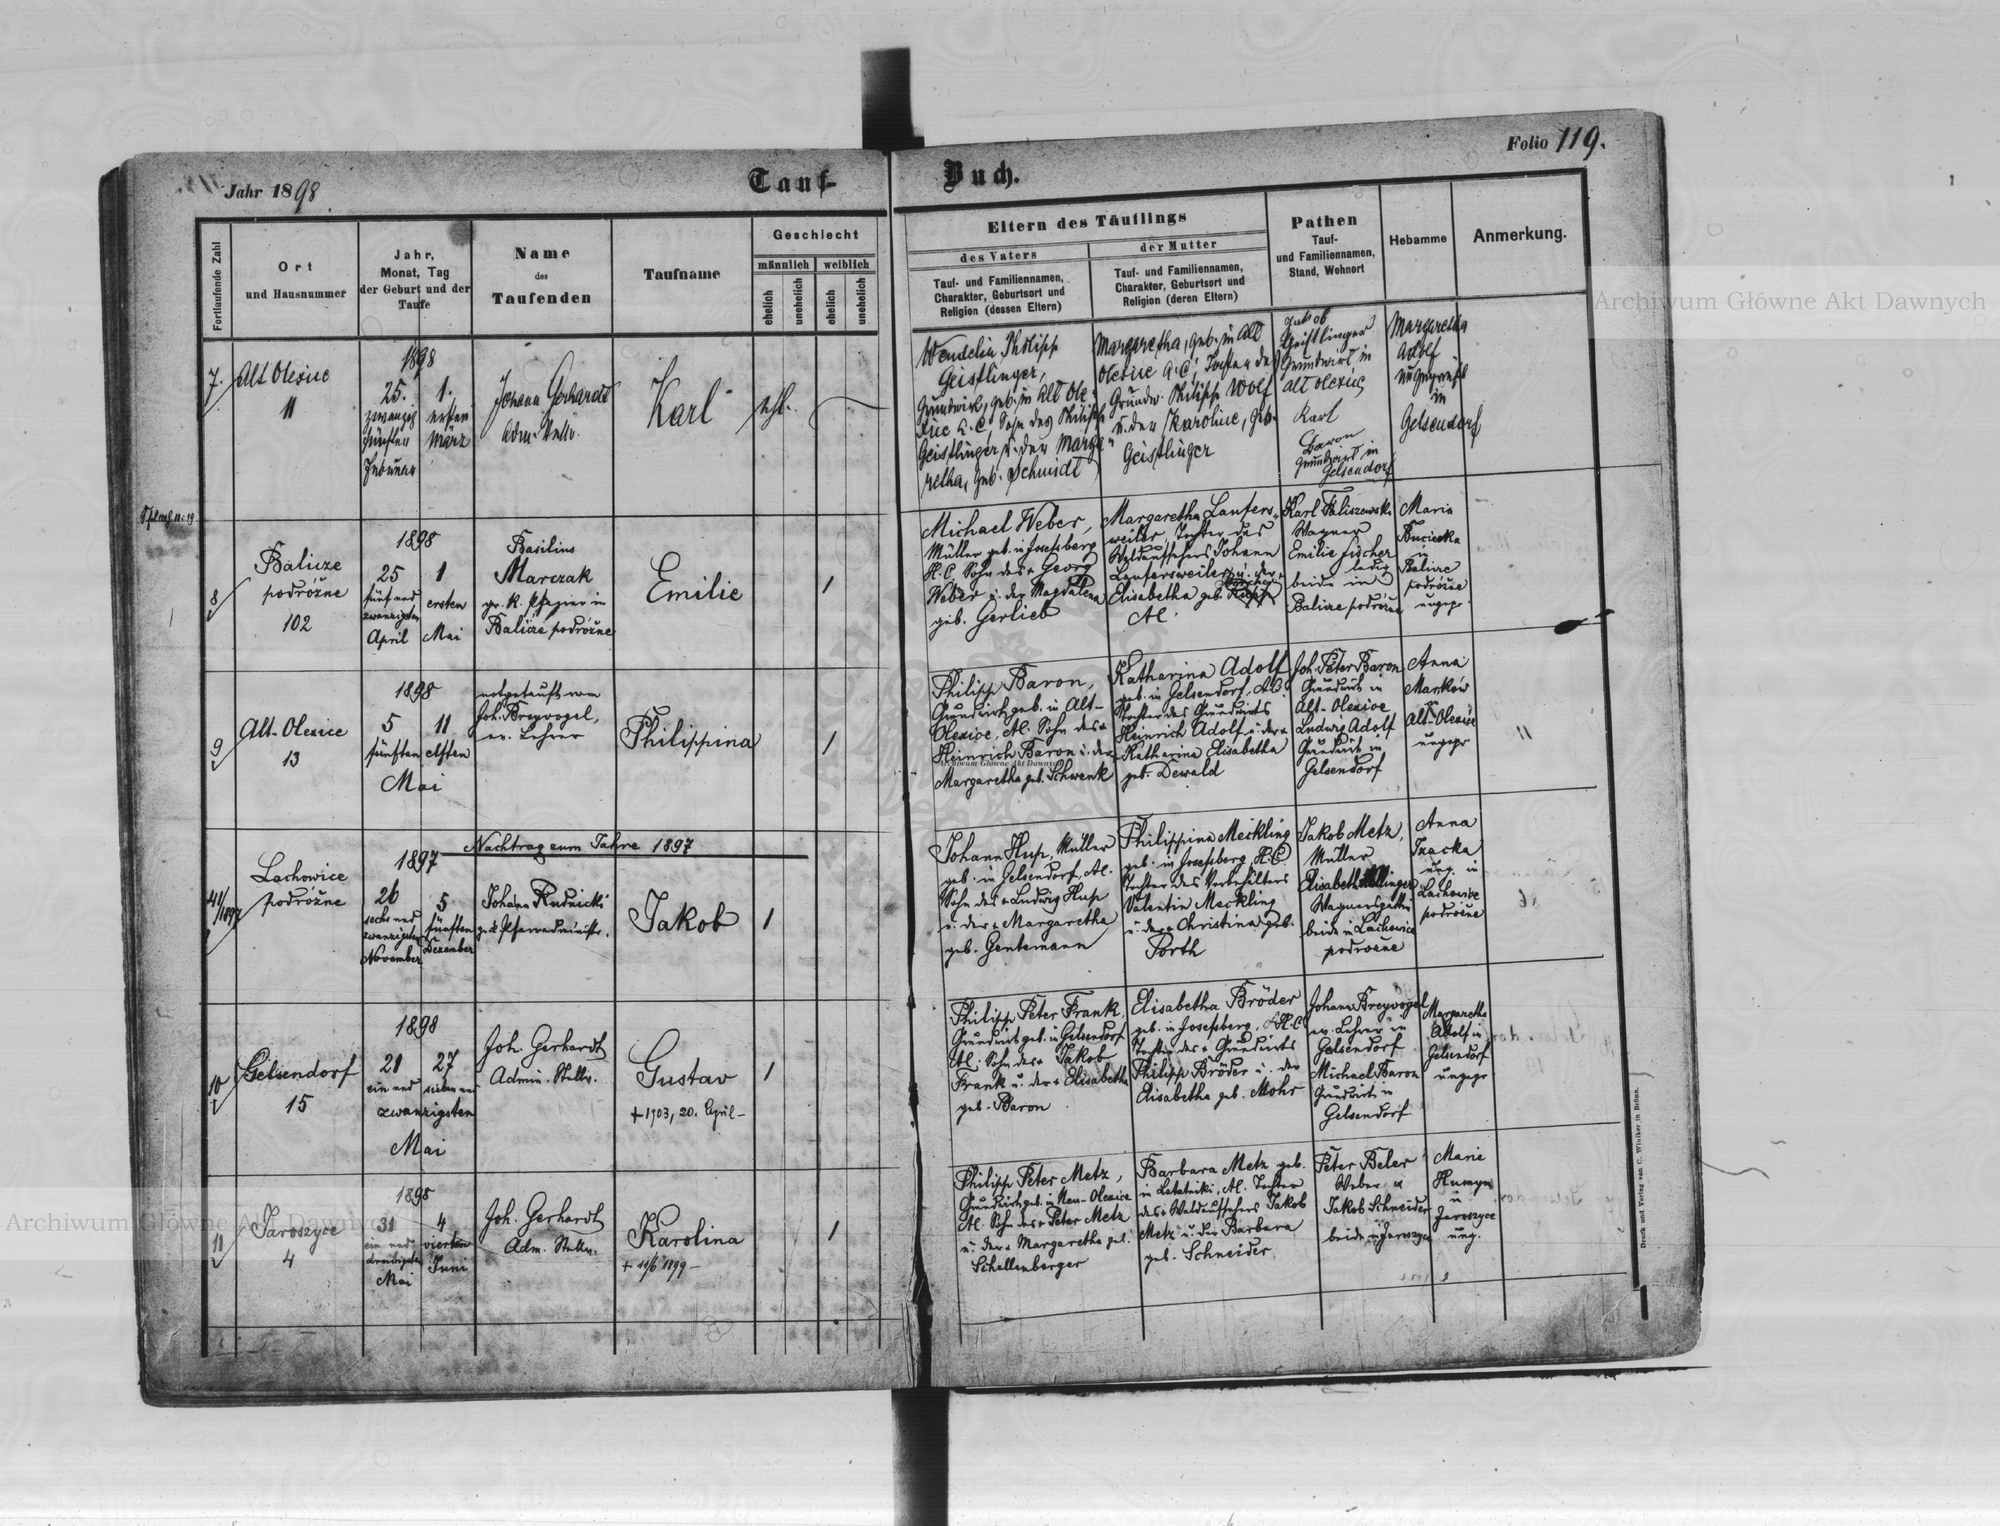 Jahr 1898
Tauf-
Buch.
Folio 119.
Fortlaufende Zahl
Ort
und Hausnummer
Jahr,
Monat, Tag
der Geburt und der
Taufe
Name
des
Taufenden
Taufname
Geschlecht
männlich
weiblich
ehelich
unehelich
ehelich
unehelich
Eltern des Täuflings
des Vaters
Tauf- und Familiennamen,
Charakter, Geburtsort und
Religion (dessen Eltern)
der Mutter
Tauf- und Familiennamen,
Charakter, Geburtsort und
Religion (deren Eltern)
Pathen
Tauf-
und Familiennamen,
Stand, Wohnort
Hebamme
Anmerkung.
7.
Alt Olexice
11
1898
25.
zwanzig
fünften
Februar
1.
ersten
März
Johann Gerhardt
Adm. Stellv.
Karl
ehl.
Wendelin Philipp
Geistlinger,
Grundwirt, geb. in Alt Ole-
xice A. C., Sohn des Philipp
Geistlinger u. der Marga-
retha, geb. Schmidt
Margaretha, geb. in Alt
Olexice A. C., Tochter des
Grundw. Philipp Wolf
u. der Karoline, geb.
Geistlinger
Jakob
Geistlinger
Grundwirt in
Alt Olexice
Karl
Baron
Grundwirt in
Gelsendorf
Margaretha
Adolf
ungeprüft
in
Gelsendorf
8
Balicze
podróżne
102
1898
25
fünf und
zwanzigsten
April
1
ersten
Mai
Basilius
Marczak
gr. k. Pfarrer in
Balicze podróżne
Emilie
1
Michael Weber,
Müller geb. in Josefsberg
H. C. Sohn des + Georg
Weber u. der Magdalena
geb. Gerlieb
Margaretha Laufers-
weiler, Tochter des
Waldaufsehers Johann
Laufersweiler u. der
Elisabetha geb.
A.C.
Karl Paliszewski
Wagner
Emilie Fischer
ledig
beide in
Balicze podróżne
Maria
Buciecka
in
Balicze
podróżne
ungepr.
9
Alt-Olexice
13
1898
5
fünften
11
elften
Mai
notgetauft vom
Joh. Breyvogel,
ev. Lehrer
Philippina
1
Philipp Baron,
Grundwirt, geb. in Alt-
Olexice, A.C. Sohn des +
Heinrich Baron u. der
Margaretha geb. Schwenk
Katharina Adolf
geb. in Gelsendorf, A.C.
Tochter des Grundwirts
Heinrich Adolf u. der +
Katharina Elisabetha
geb. Dewald
Joh. Peter Baron
Grundwirt in
Alt-Olexice
Ludwig Adolf
Grundwirt in
Gelsendorf
Anna
Markow
in
Alt-Olexice
ungepr.
Nachtrag zum Jahre 1897
41/1897
Lachowice
podróżne
1897
26
sechs und
zwanzigsten
November
5
fünften
Dezember
Johann Rudnicki
gr. k. Pfarradministr.
Jakob
1
Johann Hup, Müller
geb. in Gelsendorf, A.C.
Sohn des + Ludwig Hup
u. der + Margaretha
geb. Gentemann
Philippina Meckling
geb. in Josefsberg, H.C.
Tochter des Vorbehälters
Valentin Meckling
u. der + Christina geb.
Porth
Jakob Metz,
Müller
Elisabeth
Wagnersgattin
beide in Lachowice
podróżne
Anna
Tracka
ung. in
Lachowice
podróżne
10
Gelsendorf
15
1898
21
ein und
27
sieben und
zwanzigsten
Mai
Joh. Gerhardt
Admin. Stellv.
Gustav
+ 1903, 20. April -
1
Philipp Peter Frank,
Grundwirt geb. in Gelsendorf
A.C. Sohn des + Jakob
Frank u. der + Elisabetha
geb. Baron
Elisabetha Bröder
geb. in Josefsberg, H.C.
Tochter des + Grundwirts
Philipp Bröder u. der
Elisabetha geb. Mohr
Johann Breyvogel
ev. Lehrer in
Gelsendorf
Michael Baron
Grundwirt in
Gelsendorf
Margaretha
Adolf in
Gelsendorf
ungepr
11
Jaroszyce
4
1898
31
ein und
dreißigsten
Mai
4
vierten
Juni
Joh. Gerhardt
Adm. Stellv.
Karolina
+ 11/6 1899 -
1
Philipp Peter Metz,
Grundwirt geb. in Neu-Olexice
A.C. Sohn des + Peter Metz
u. der + Margaretha geb.
Schellenberger
Barbara Metz geb.
in Latatniki, A.C. Tochter
des + Waldaufsehers Jakob
Metz u. der Barbara
geb. Schneider
Peter Beler
Weber u.
Jakob Schneider
beide in Jaroszyce
Marie
Humyn
in
Jaroszyce
ung.
Druck und Verlag von C. Winiker in Brünn.
Archiwum Główne Akt Dawnych
Archiwum Główne Akt Dawnych
Archiwum Główne Akt Dawnych